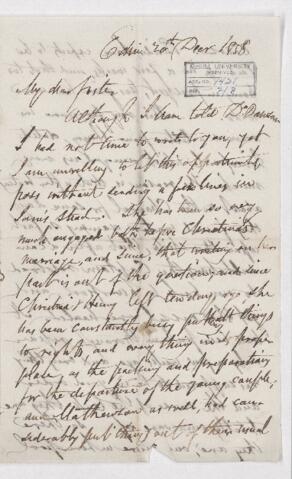 Edinr 20th Decr 1858.
KEELE UNIVERSITY
LIBRARY
My dear
Although I have told Dr
I had not time to write to you, yet
I am unwilling to let this opportunity
pass without sending a few lines in
stead. She has been so very
much engaged both before Christina's
marriage, and since, that writing on her
part is out of the question, and since
Christina & Henry left two days ago she
has been constantly busy putting things
to rights and every thing in its proper
place as the packing and preparations
for the departure of the young couple,
and Matthewson as well had consi-
derably put things out of their usual